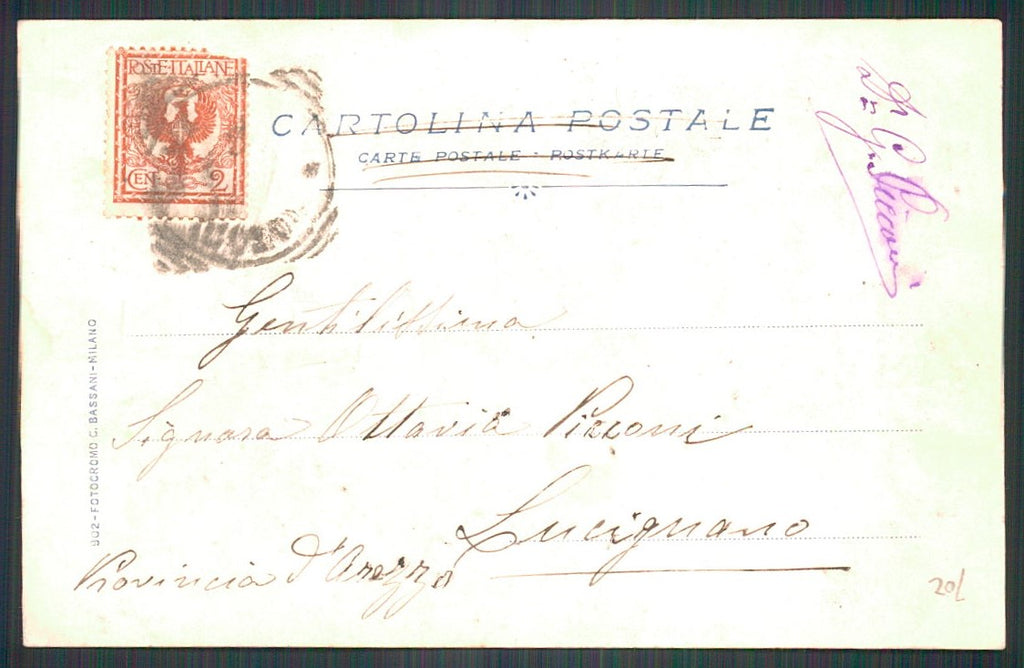 POSTE·ITALIANE
CEN. 2
CARTOLINA POSTALE
CARTE POSTALE - POSTKARTE
Gentilissima
Signora Ottavia Pizzoni
Lucignano
Provincia d'Arezzo
902-FOTOCROMO C. BASSANI-MILANO
20/